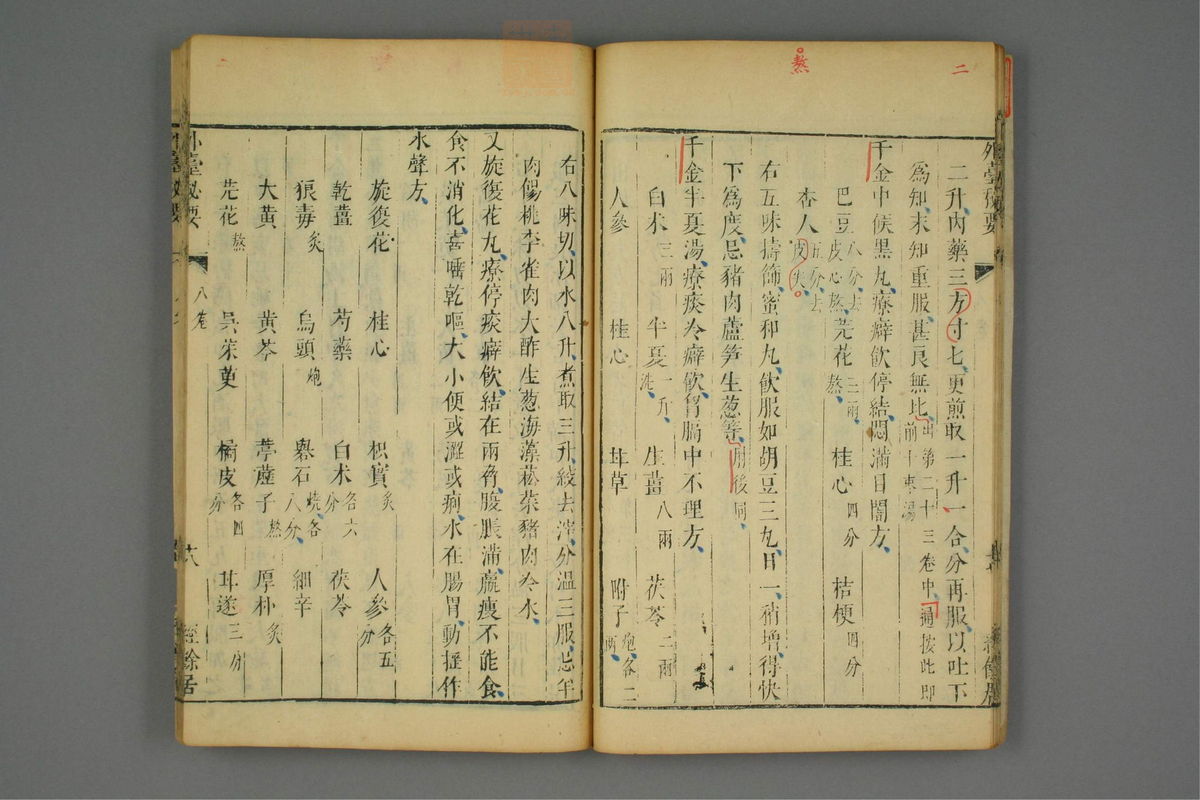 二升內藥三方寸匕更煎取一升一合分再服以吐下
爲知未知重服甚良無比出第二十三卷中通按此卽前十棗湯
千金中候黑丸療癖飲停結悶滿目闇方
巴豆八分去皮心熬 芫花三兩熬 桂心四分 桔梗四分
杏人五分去皮尖
右五味擣篩蜜和丸飲服如胡豆三丸日一稍增得快
下爲度忌豬肉蘆笋生葱等肘後同
千金半夏湯療痰冷癖飲胷膈中不理方
白朮三兩 半夏一升洗 生薑八兩 茯苓二兩
人參 桂心 甘草 附子炮各二兩
右八味切以水八升煮取三升絞去滓分溫三服忌羊
肉餳桃李雀肉大酢生葱海藻菘菜豬肉冷水
又旋復花丸療停痰癖飲結在兩脅股脹滿羸瘦不能食
食不消化喜唾乾嘔大小便或澀或痢水在腸胃動搖作
水聲方
旋復花 桂心 枳實炙 人參各五分
乾薑 芍藥 白朮各六分 茯苓
狼毒炙 烏頭炮 礜石燒各八分 細辛
大黃 黃芩 葶藶子熬 厚朴炙
芫花熬 吳茱萸 橘皮各四分 甘遂三分
外臺秘要
八卷
經餘居
二
熬